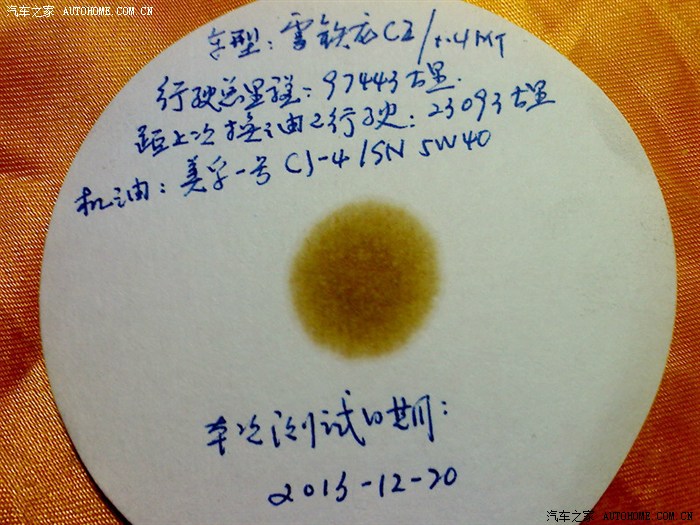 汽车之家 AUTOHOME.COM.CN
车型：雪铁龙C2/1.4MT
行驶总里程：97443公里.
距上次换油已行驶：23093公里
机油：美孚一号 CJ-4/SN 5W40
本次测试日期：
2013-12-20
汽车之家 AUTOHOME.COM.CN